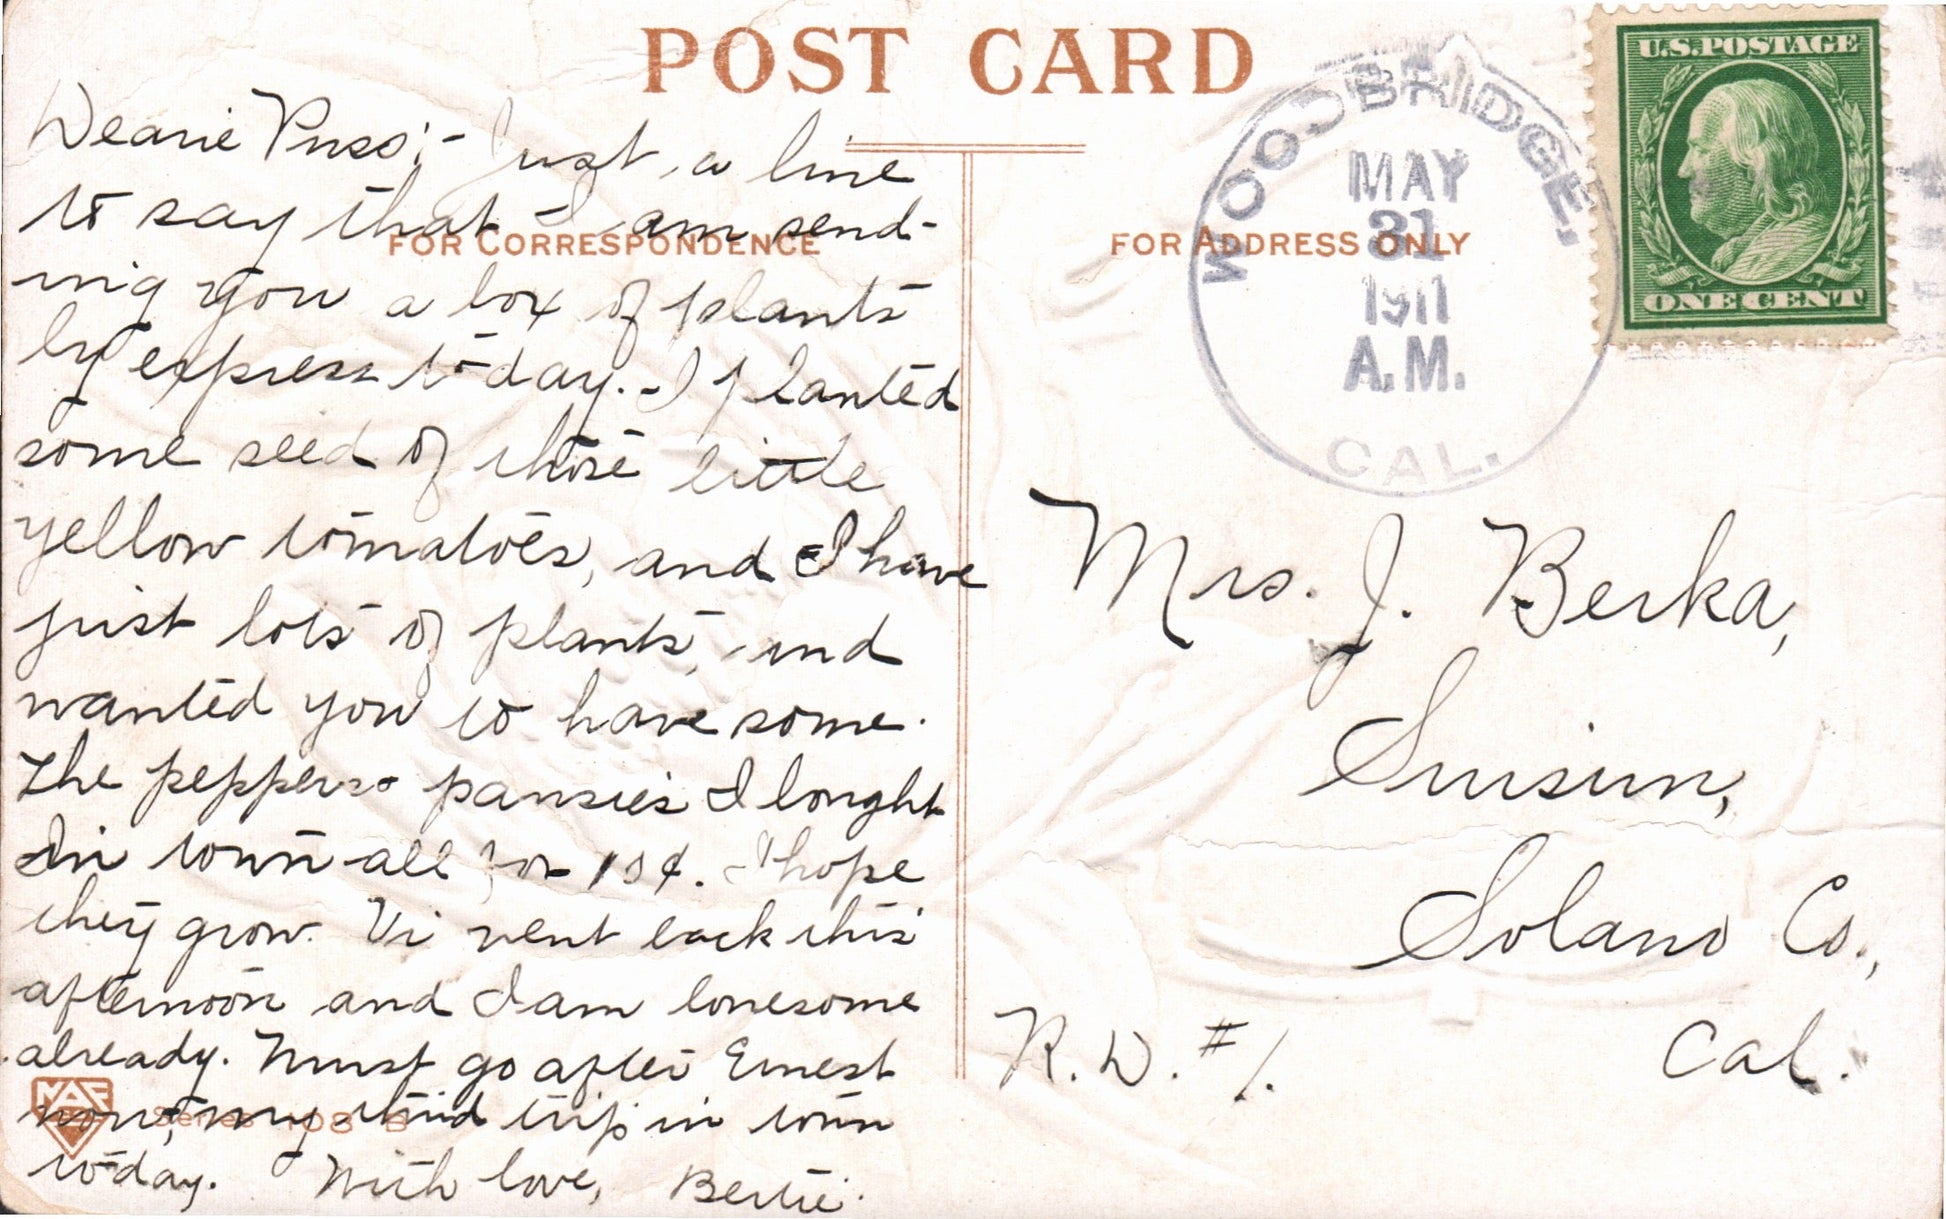 POST CARD
U.S. POSTAGE
ONE CENT
WOODBRIDGE,
MAY
31
1911
A.M.
CAL.
FOR CORRESPONDENCE
FOR ADDRESS ONLY
Dearie Puss:- Just a line
to say that I am send-
ing you a box of plants
by express to-day. - I planted
some seed of those little
yellow tomatoes, and I have
just lots of plants, and
wanted you to have some.
The peppers + pansies I bought
in town all for 15¢. I hope
they grow. Vi went back this
afternoon and I am lonesome
already. Must go after Ernest
now, my third trip in town
to-day. With love, Bertie.
Mrs. J. Berka,
Suisun,
Solano Co.,
Cal.
R.D. #1.
Series 108 B